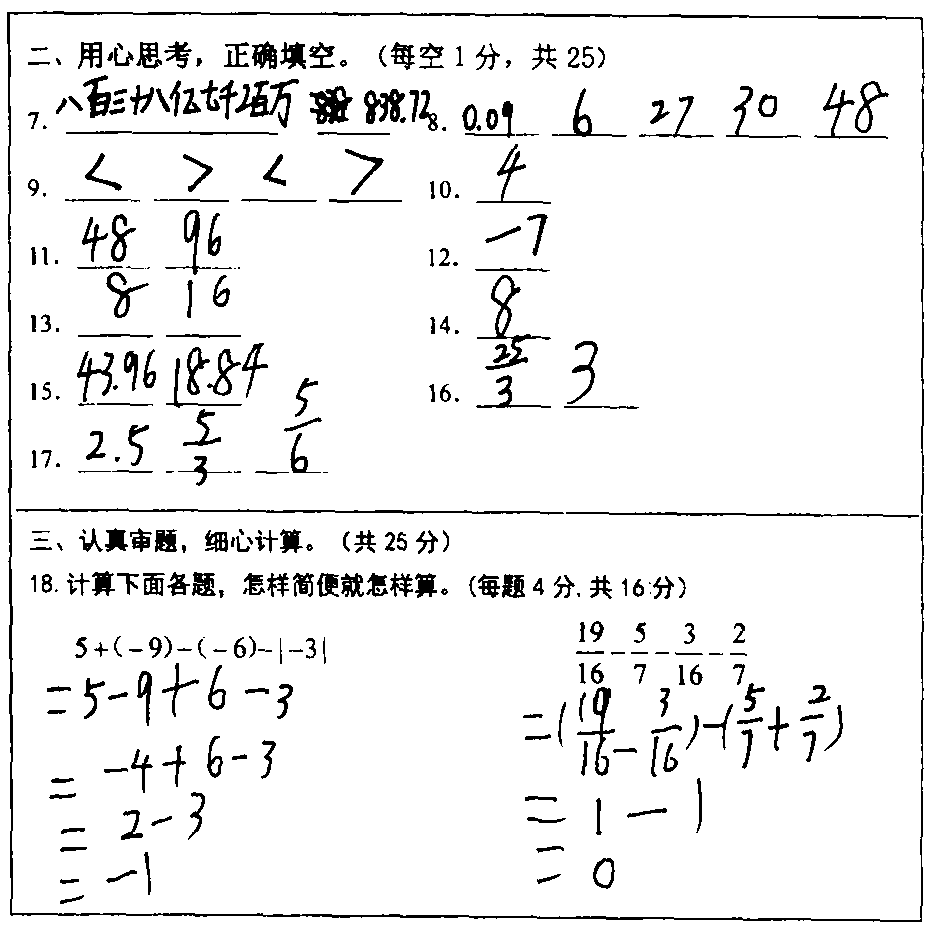 二、用心思考，正确填空。（每空1分，共25）
7. 八百三十八亿七千2百万 838.72 8. 0.09 6 27 30 48
9. < > < > 10. 4
11. 48 96 12. -7
13. 8 16 14. 8
15. 43.96 18.84 16. 25/3 3
17. 2.5 5/3 5/6
三、认真审题，细心计算。（共25分）
18. 计算下面各题，怎样简便就怎样算。（每题4分，共16分）
5+(-9)-(-6)-|-3| 19/16-5/7-3/16-2/7
=5-9+6-3 =(19/16-3/16)-(5/7+2/7)
=-4+6-3 =1-1
=2-3 =0
=-1